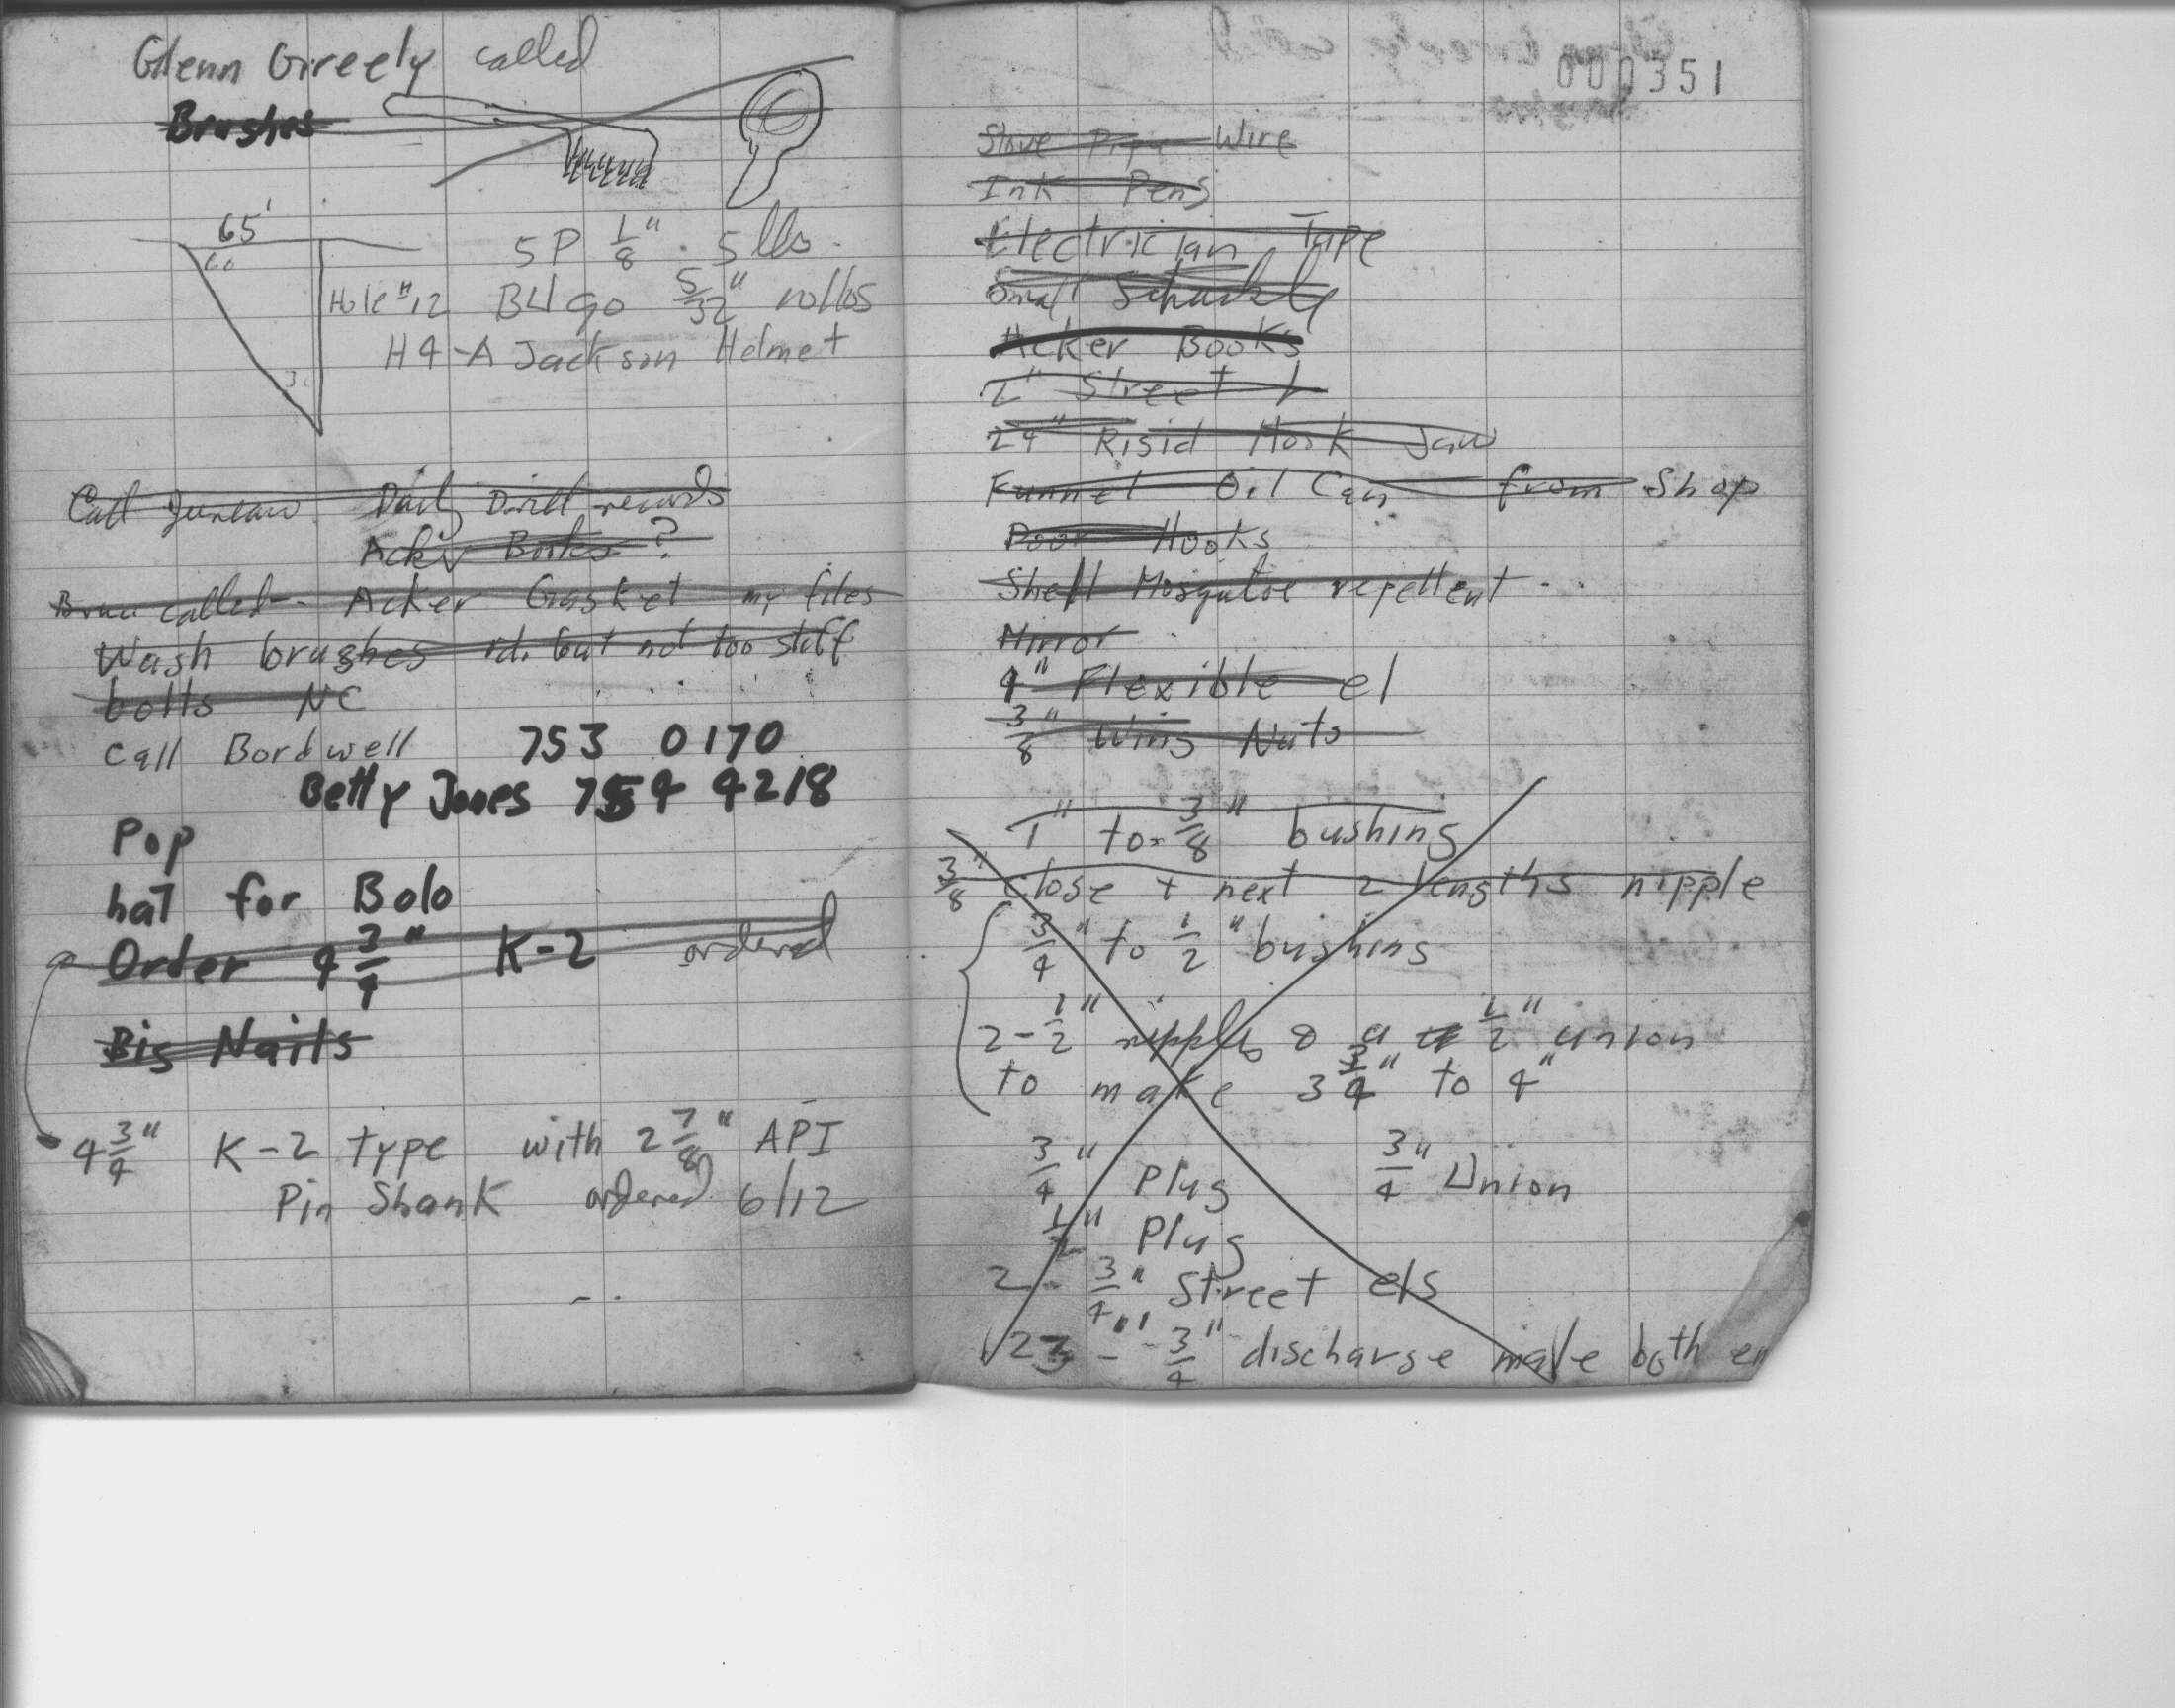 Glenn Greely called
Brushes
65'
60
5P 1/8" . 5 lbs.
Hole #12
10 lbs
H4-A Jackson Helmet
Call Juneau Daily Drill records
Acker Books?
called - Acker Gasket my files
Wash brushes but not too stiff
bolts NC
call Bordwell 753 0170
Betty Jones 754 4218
Pop
hat for Bolo
Order 4 3/4" K-2 ordered
Big Nails
4 3/4" K-2 type with 2 7/8" API
Pin Shank ordered 6/12
000351
Stove Pipe Wire
Ink Pens
Electrician Tape
Small Schackle
Acker Books
2" Street L
24" Rigid Hook Jaw
Funnel Oil Can from Shop
Door Hooks
Shell Mosquitoe repellent
Mirror
4" Flexible el
3/8" Wing Nuts
1" to 3/8" bushing
3/8" close + next 2 lengths nipple
3/4" to 1/2" bushing
2 - 1/2" nipples & a 1/2" union
to make 3 3/4" to 4"
3/4" Plug 3/4" Union
1/2" Plug
2 - 3/4" Street els
3/4" discharge male both